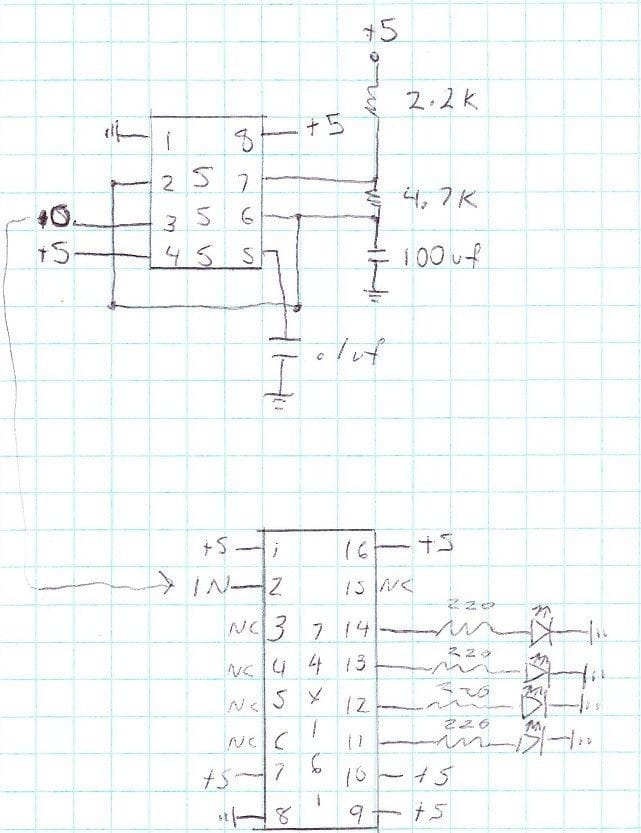 +5
2.2K
1 8 +5
2 5 7
4.7K
3 5 6
+5 4 5 5
100uf
.1uf
+5 1 16 +5
IN 2 15 NC
220
NC 3 7 14
220
NC 4 4 13
NC 5 X 12
220
NC 6 1 11
+5 7 6 10 +5
8 1 9 +5